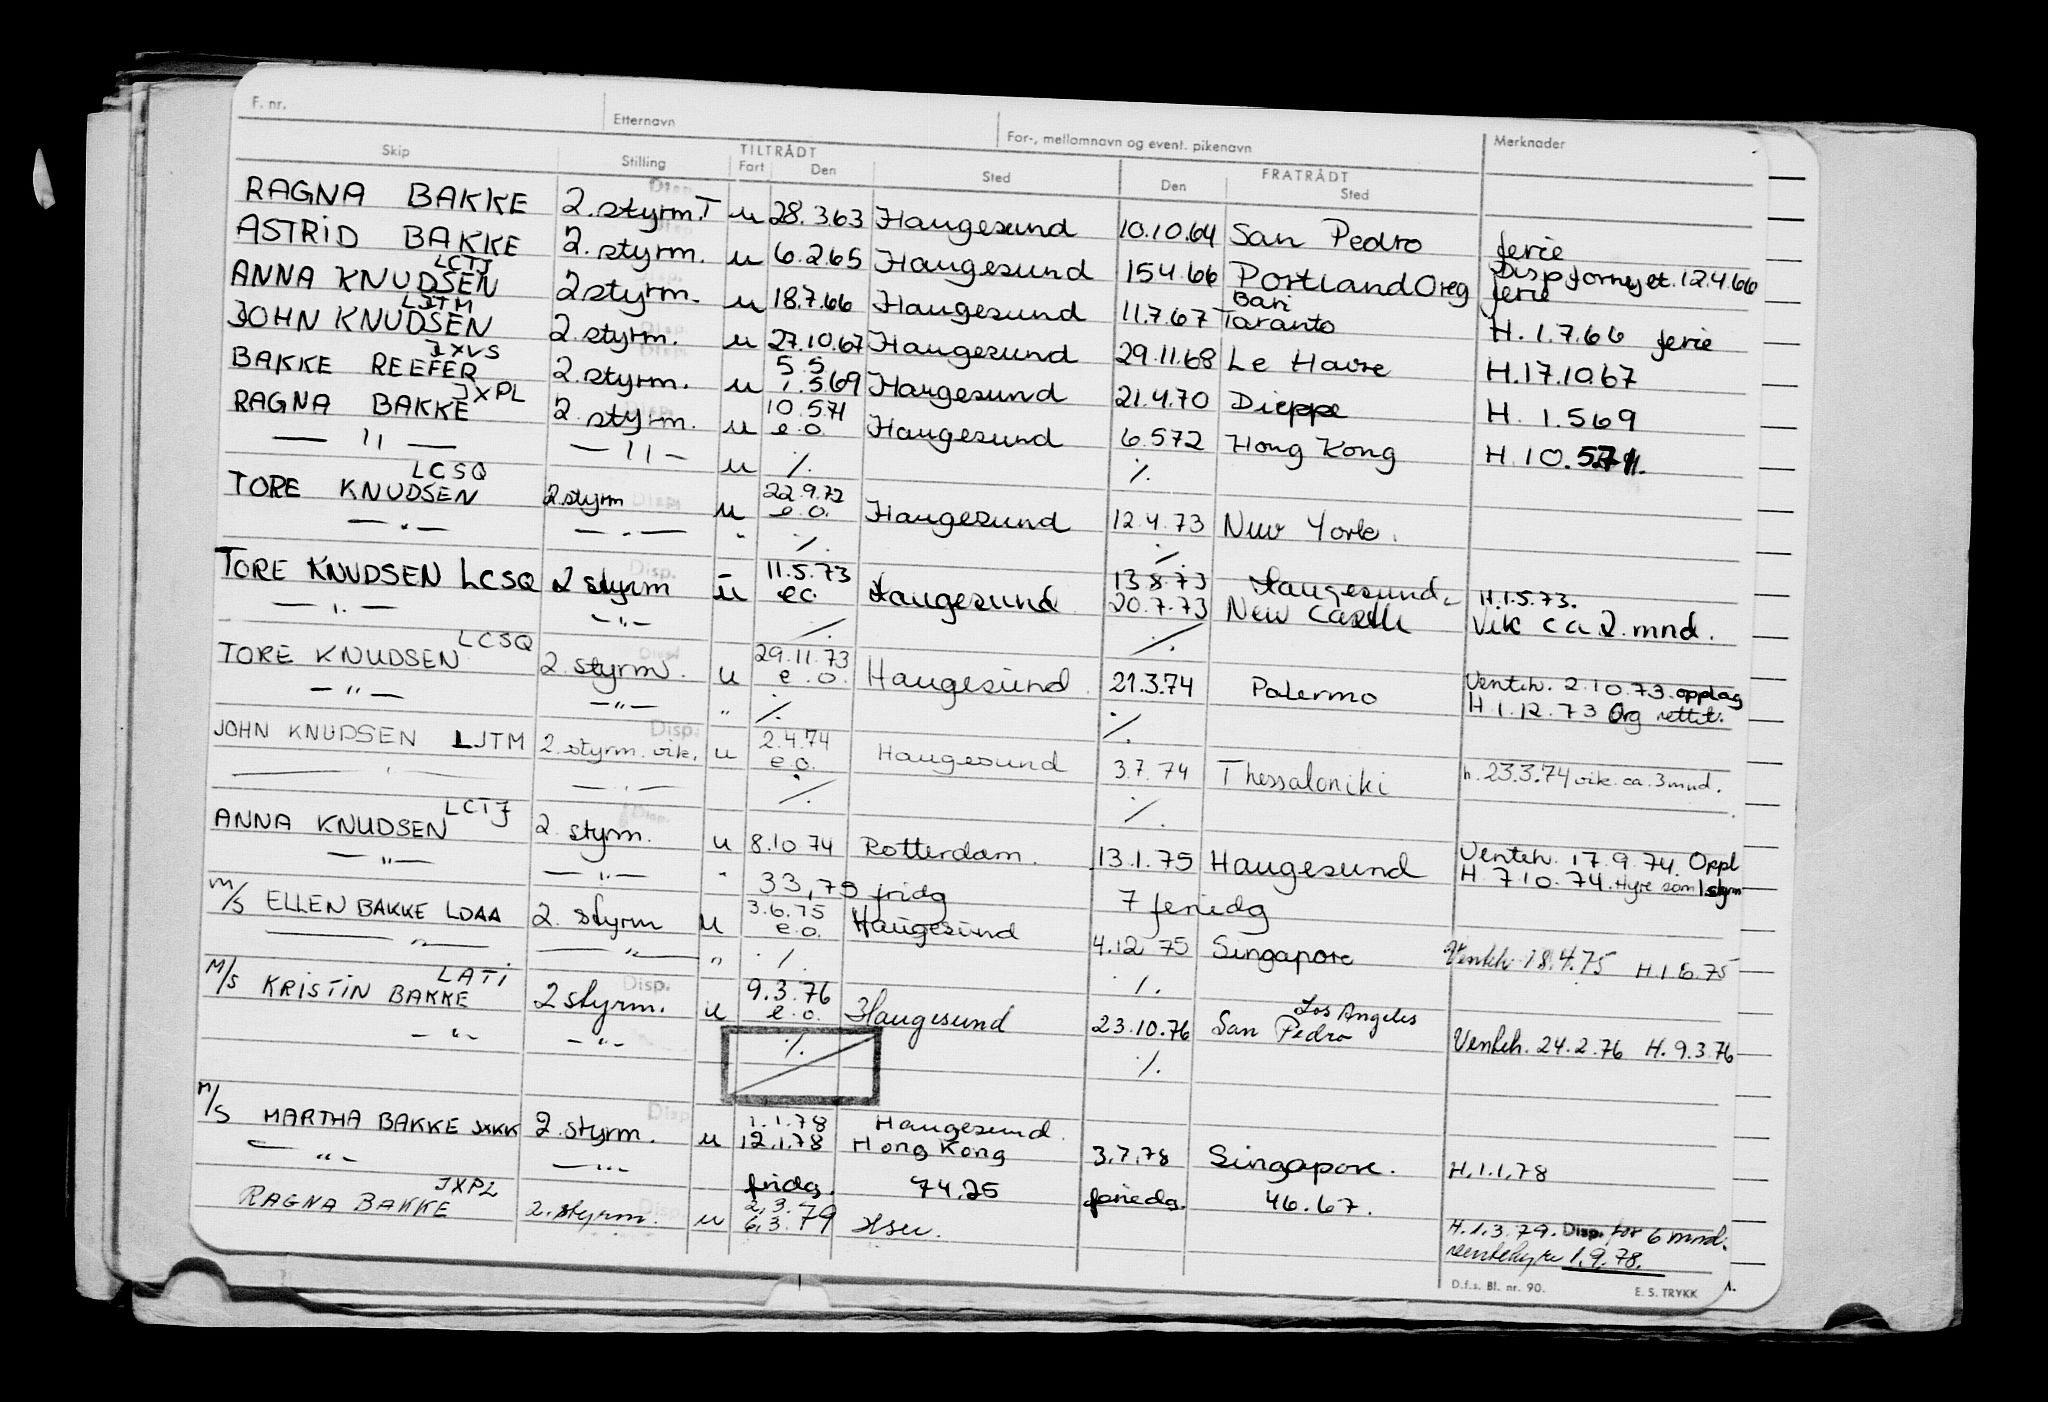 F. nr. Etternavn For-, mellomnavn og event. pikenavn Merknader
Skip Stilling TILTRÅDT Fart Den Sted FRATRÅDT Den Sted
RAGNA BAKKE 2. styrm. T u 28.3.63 Haugesund 10.10.64 San Pedro ferie
ASTRID BAKKE 2. styrm. u 6.2.65 Haugesund 15.4.66 Portland Oreg Disp fornyet. 12.4.66 ferie
ANNA KNUDSEN LCTJ 2 styrm. u 18.7.66 Haugesund 11.7.67 Bari Taranto H. 1.7.66 ferie
JOHN KNUDSEN LJTM 2. styrm. u 27.10.67 Haugesund 29.11.68 Le Havre H.17.10.67
BAKKE REEFER JXVS 2. styrm. u 5.5 1.5.69 Haugesund 21.4.70 Dieppe H. 1.5.69
RAGNA BAKKE JXPL 2. styrm. u 10.5.71 e.o. Haugesund 6.5.72 Hong Kong H.10.5.71.
— " — — " — u ⁒ ⁒
TORE KNUDSEN LCSQ 2. styrm Disp. u 22.9.72 e.o. Haugesund 12.4.73 New York.
— " — — " — " ⁒ ⁒
TORE KNUDSEN LCSQ 2 styrm Disp. u 11.5.73 e.o. Haugesund 13.8.73 Haugesund H.1.5.73.
— " — — " — ⁒ 20.7.73 New Castle Vik ca 2. mnd.
⁒
TORE KNUDSEN LCSQ 2. styrm. u 29.11.73 e.o. Haugesund 21.3.74 Palermo Venteh. 2.10.73. opplag
— " — — " — " ⁒ ⁒ H.1.12.73 Org rettit.
JOHN KNUDSEN LJTM 2. styrm. vik. Disp. u 2.4.74 e.o. Haugesund 3.7.74 Thessaloniki h. 23.3.74 vik. ca. 3 mnd.
— " — — " — ⁒ ⁒
ANNA KNUDSEN LCTJ 2. styrm. Disp. u 8.10.74 Rotterdam. 13.1.75 Haugesund Venteh. 17.9.74. Oppl
— " — — " — " 33,75 fridg 7 feriedg H. 7.10.74. Hyre som 1 styrm
M/S ELLEN BAKKE LDAA 2. styrm u 3.6.75 e.o. Haugesund 4.12.75 Singapore Venteh 18.4.75 H.1.6.75
— " — — " — " ⁒ ⁒
M/S KRISTIN BAKKE LATI 2 styrm. Disp. u 9.3.76 e.o. Haugesund 23.10.76 Los Angeles San Pedro Venteh. 24.2.76 H. 9.3.76
— " — — " — ⁒ ⁒
M/S MARTHA BAKKE JXKK 2. styrm. Disp. u 1.1.78 Haugesund. 12.1.78 Hong Kong 3.7.78 Singapore. H.1.1.78
— " — — " — fridg. 74.25 feriedg. 46.67.
RAGNA BAKKE JXPL 2. styrm. Disp. u 2.3. 6.3.79 Hsu. H.1.3.79. Disp. for 6 mnd.
ventehyre 1.9.78.
D.f.s. Bl. nr. 90. E. S. TRYKK